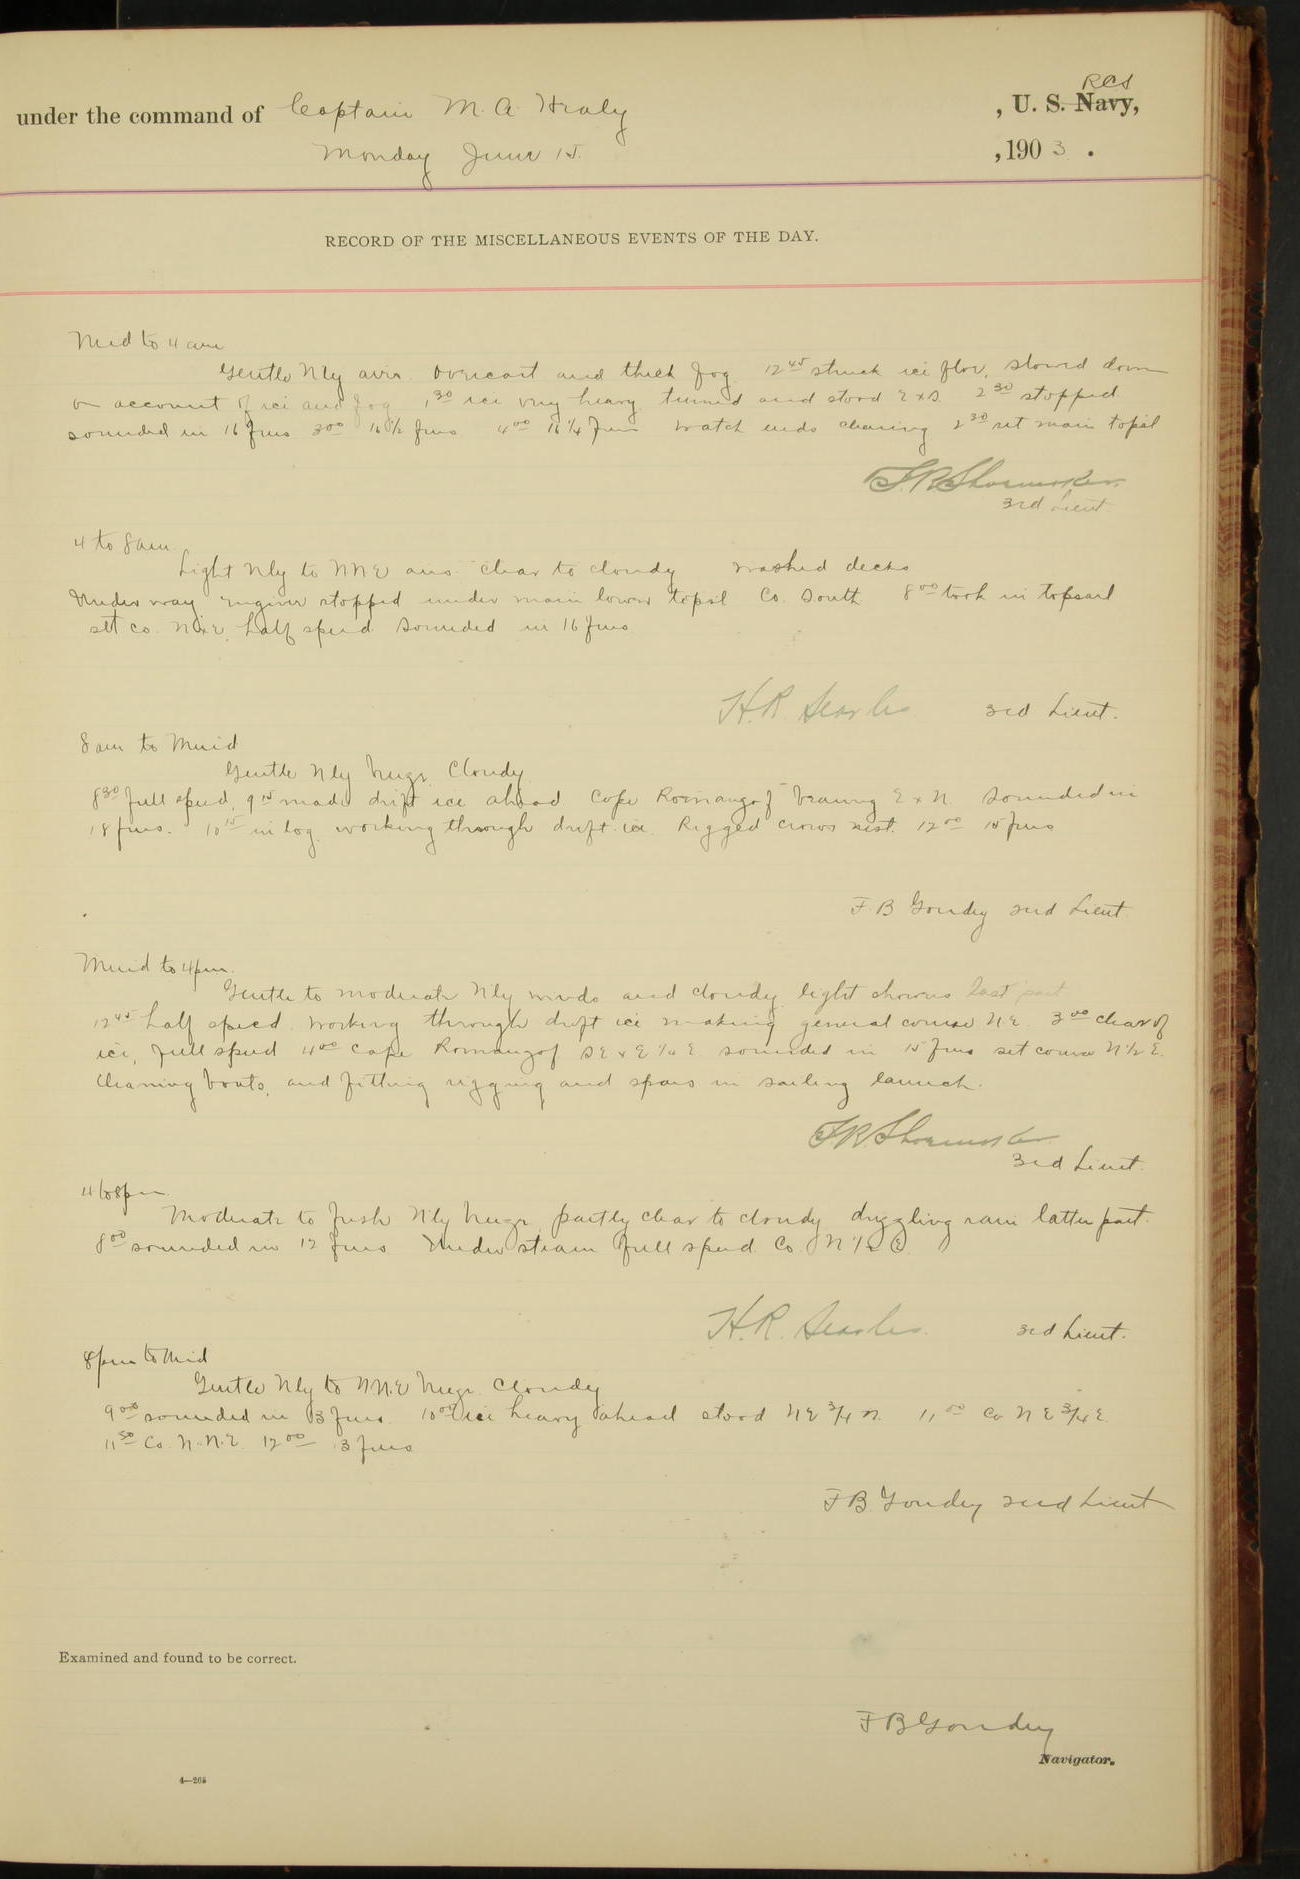 under the command of Captain M. A. Healy , U. S. Navy, RCS
Monday June 15. , 190 3 .
RECORD OF THE MISCELLANEOUS EVENTS OF THE DAY.
Mid to 4 am
Gentle Nly airs. Overcast and thick fog 12 45 struck ice floe, slowed down
on account of ice and fog 1 30 ice very heavy turned and stood E x S. 2 30 stopped
sounded in 16 fms 3 00 16 1/2 fms 4 00 16 1/4 fms Watch ends clearing 2 30 set main topsl
3rd Lieut.
4 to 8 am
Light Nly to NNE airs clear to cloudy washed decks
Under way engines stopped under main lower topsl Co. South 8 00 took in topsail
set Co. half speed sounded in 16 fms
H. R. Searles 3rd Lieut.
8 am to Merid
Gentle Nly breeze Cloudy
8 30 full speed, 9 15 made drift ice ahead Cape Romanzof bearing E x N sounded in
18 fms. 10 15 in log. working through drift ice. Rigged crows nest. 12 00 15 fms
F B Goudey 2nd Lieut.
Merid to 4 pm.
Gentle to moderate Nly winds and cloudy light showers last part
12 45 half speed. Working through drift ice making general course NE. 3 00 clear of
ice, full speed 4 00 Cape Romanzof SE x E 1/4 E. sounded in 15 fms set course N 1/2 E.
Cleaning boats, and fitting rigging and spars in sailing launch.
3rd Lieut.
4 to 8 pm
Moderate to fresh Nly breeze, partly clear to cloudy drizzling rain latter part.
8 00 sounded in 12 fms Under steam full speed Co. N 1/2 E.
H. R. Searles. 3rd Lieut.
8 pm to Mid
Gentle Nly to NNE breeze cloudy
9 00 sounded in 13 fms. 10 00 ice heavy ahead stood NE 3/4 N. 11 00 Co NE 3/4 E.
11 30 Co. N.N.E. 12 00 13 fms
F B. Goudey 2nd Lieut
Examined and found to be correct.
F B Goudey
Navigator.
4—265